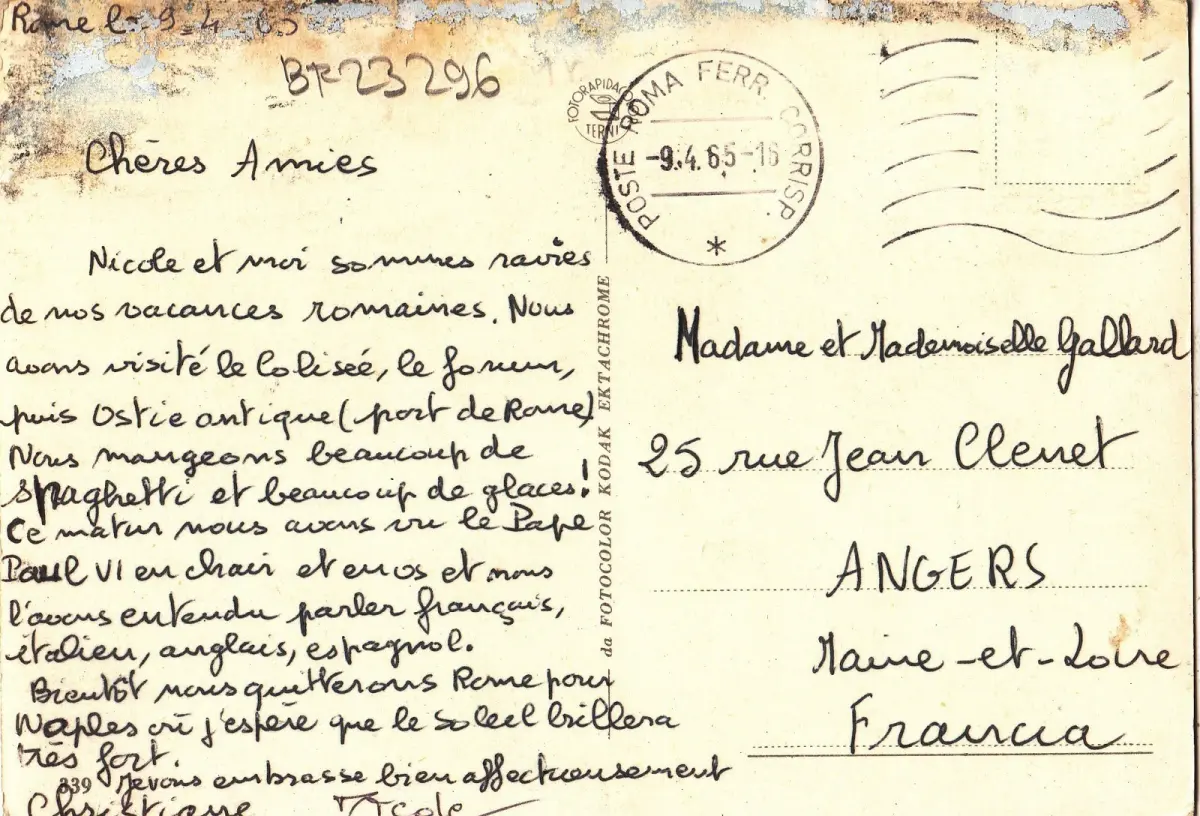 Rome le 9-4-65
BR23296
Chères Amies
Nicole et moi sommes ravies
de nos vacances romaines. Nous
avons visité le Colisée, le forum,
puis Ostie antique (port de Rome)
Nous mangeons beaucoup de
spaghetti et beaucoup de glaces!
Ce matin nous avons vu le Pape
Paul VI en chair et en os et nous
l'avons entendu parler français,
italien, anglais, espagnol.
Bientôt nous quitterons Rome pour
Naples où j'espère que le soleil brillera
très fort.
339 Je vous embrasse bien affectueusement
Christiane Nicole
FOTORAPIDACOLOR
TERNI
POSTE ROMA FERR. CORRISP.
-9.4.65-16
da FOTOCOLOR KODAK EKTACHROME
Madame et Mademoiselle Gallard
25 rue Jean Clenet
ANGERS
Maine-et-Loire
Francia